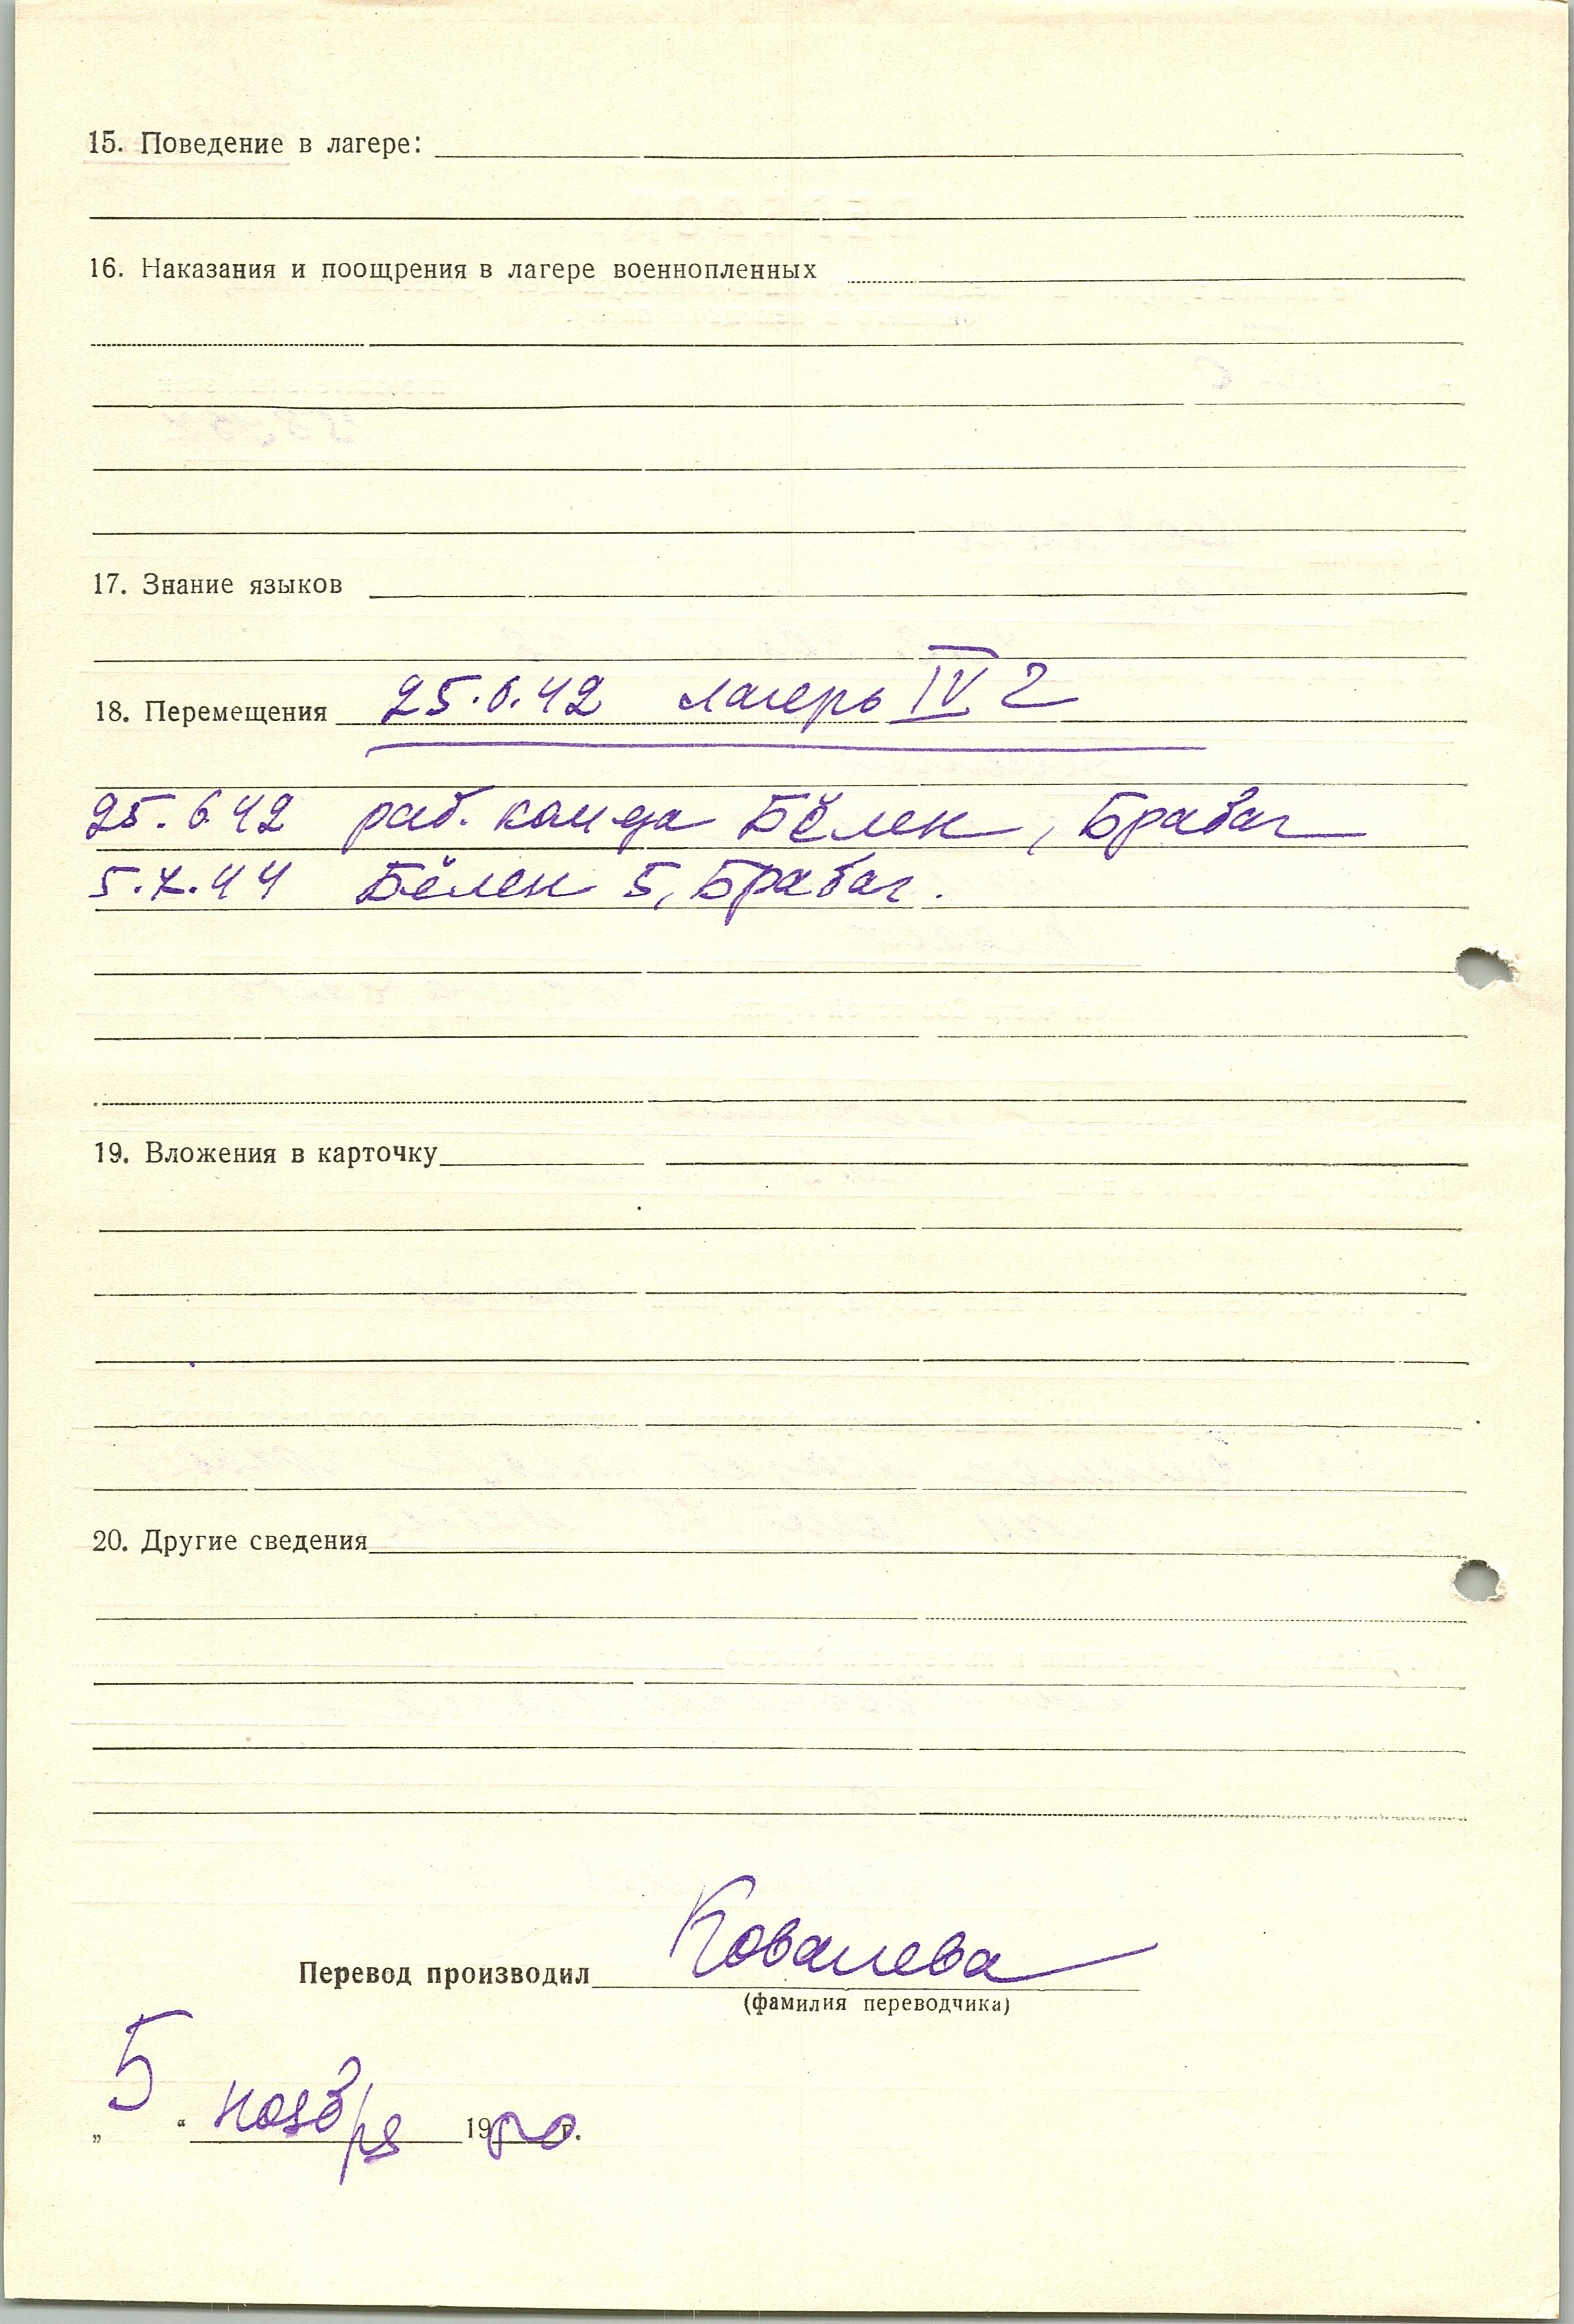 15. Поведение в лагере:
16. Наказания и поощрения в лагере военнопленных
17. Знание языков
18. Перемещения 25.6.42 лагерь IV г
25.6.42 раб. кам да Бёлен, Брабаг
5.7.44 Бёлен 5, Брабаг.
19. Вложения в карточку
20. Другие сведения
Перевод производил Ковалева
(фамилия переводчика)
„5“ ноября 1950 г.